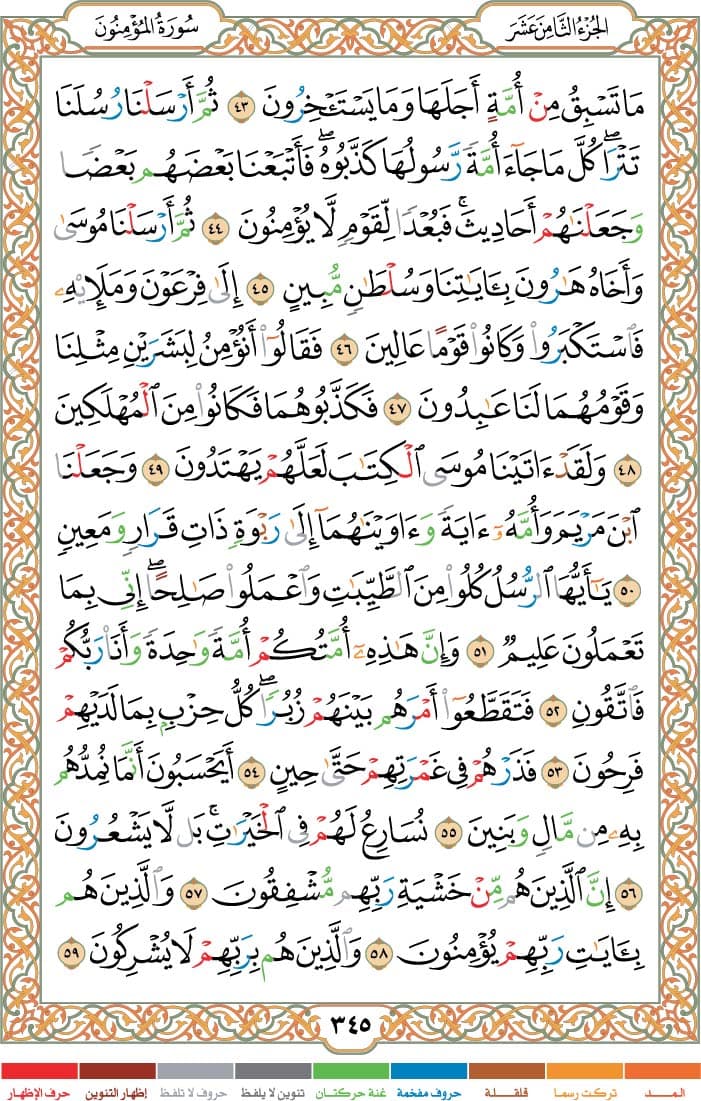 الجُزْءُ الثَّامِنَ عَشَرَ
سُورَةُ المُؤْمِنُونَ
مَا تَسْبِقُ مِنْ أُمَّةٍ أَجَلَهَا وَمَا يَسْتَـْٔخِرُونَ ٤٣ ثُمَّ أَرْسَلْنَا رُسُلَنَا
تَتْرَا ۖ كُلَّ مَا جَآءَ أُمَّةً رَّسُولُهَا كَذَّبُوهُ ۚ فَأَتْبَعْنَا بَعْضَهُم بَعْضًا
وَجَعَلْنَـٰهُمْ أَحَادِيثَ ۚ فَبُعْدًا لِّقَوْمٍ لَّا يُؤْمِنُونَ ٤٤ ثُمَّ أَرْسَلْنَا مُوسَىٰ
وَأَخَاهُ هَـٰرُونَ بِـَٔايَـٰتِنَا وَسُلْطَـٰنٍ مُّبِينٍ ٤٥ إِلَىٰ فِرْعَوْنَ وَمَلَإِي۟هِۦ
فَٱسْتَكْبَرُوا۟ وَكَانُوا۟ قَوْمًا عَالِينَ ٤٦ فَقَالُوٓا۟ أَنُؤْمِنُ لِبَشَرَيْنِ مِثْلِنَا
وَقَوْمُهُمَا لَنَا عَـٰبِدُونَ ٤٧ فَكَذَّبُوهُمَا فَكَانُوا۟ مِنَ ٱلْمُهْلَكِينَ
٤٨ وَلَقَدْ ءَاتَيْنَا مُوسَى ٱلْكِتَـٰبَ لَعَلَّهُمْ يَهْتَدُونَ ٤٩ وَجَعَلْنَا
ٱبْنَ مَرْيَمَ وَأُمَّهُۥٓ ءَايَةً وَءَاوَيْنَـٰهُمَآ إِلَىٰ رَبْوَةٍ ذَاتِ قَرَارٍ وَمَعِينٍ
٥٠ يَـٰٓأَيُّهَا ٱلرُّسُلُ كُلُوا۟ مِنَ ٱلطَّيِّبَـٰتِ وَٱعْمَلُوا۟ صَـٰلِحًا ۖ إِنِّى بِمَا
تَعْمَلُونَ عَلِيمٌ ٥١ وَإِنَّ هَـٰذِهِۦٓ أُمَّتُكُمْ أُمَّةً وَٰحِدَةً وَأَنَا۠ رَبُّكُمْ
فَٱتَّقُونِ ٥٢ فَتَقَطَّعُوٓا۟ أَمْرَهُم بَيْنَهُمْ زُبُرًا ۖ كُلُّ حِزْبٍۭ بِمَا لَدَيْهِمْ
فَرِحُونَ ٥٣ فَذَرْهُمْ فِى غَمْرَتِهِمْ حَتَّىٰ حِينٍ ٥٤ أَيَحْسَبُونَ أَنَّمَا نُمِدُّهُم
بِهِۦ مِن مَّالٍ وَبَنِينَ ٥٥ نُسَارِعُ لَهُمْ فِى ٱلْخَيْرَٰتِ ۚ بَل لَّا يَشْعُرُونَ
٥٦ إِنَّ ٱلَّذِينَ هُم مِّنْ خَشْيَةِ رَبِّهِم مُّشْفِقُونَ ٥٧ وَٱلَّذِينَ هُم
بِـَٔايَـٰتِ رَبِّهِمْ يُؤْمِنُونَ ٥٨ وَٱلَّذِينَ هُم بِرَبِّهِمْ لَا يُشْرِكُونَ ٥٩
٣٤٥
المـــد
تركت رسما
قلقـلـة
حروف مفخمة
غنة حركتـان
تنوين لا يلفظ
حروف لا تلفظ
إظهار التنوين
حرف الإظهار